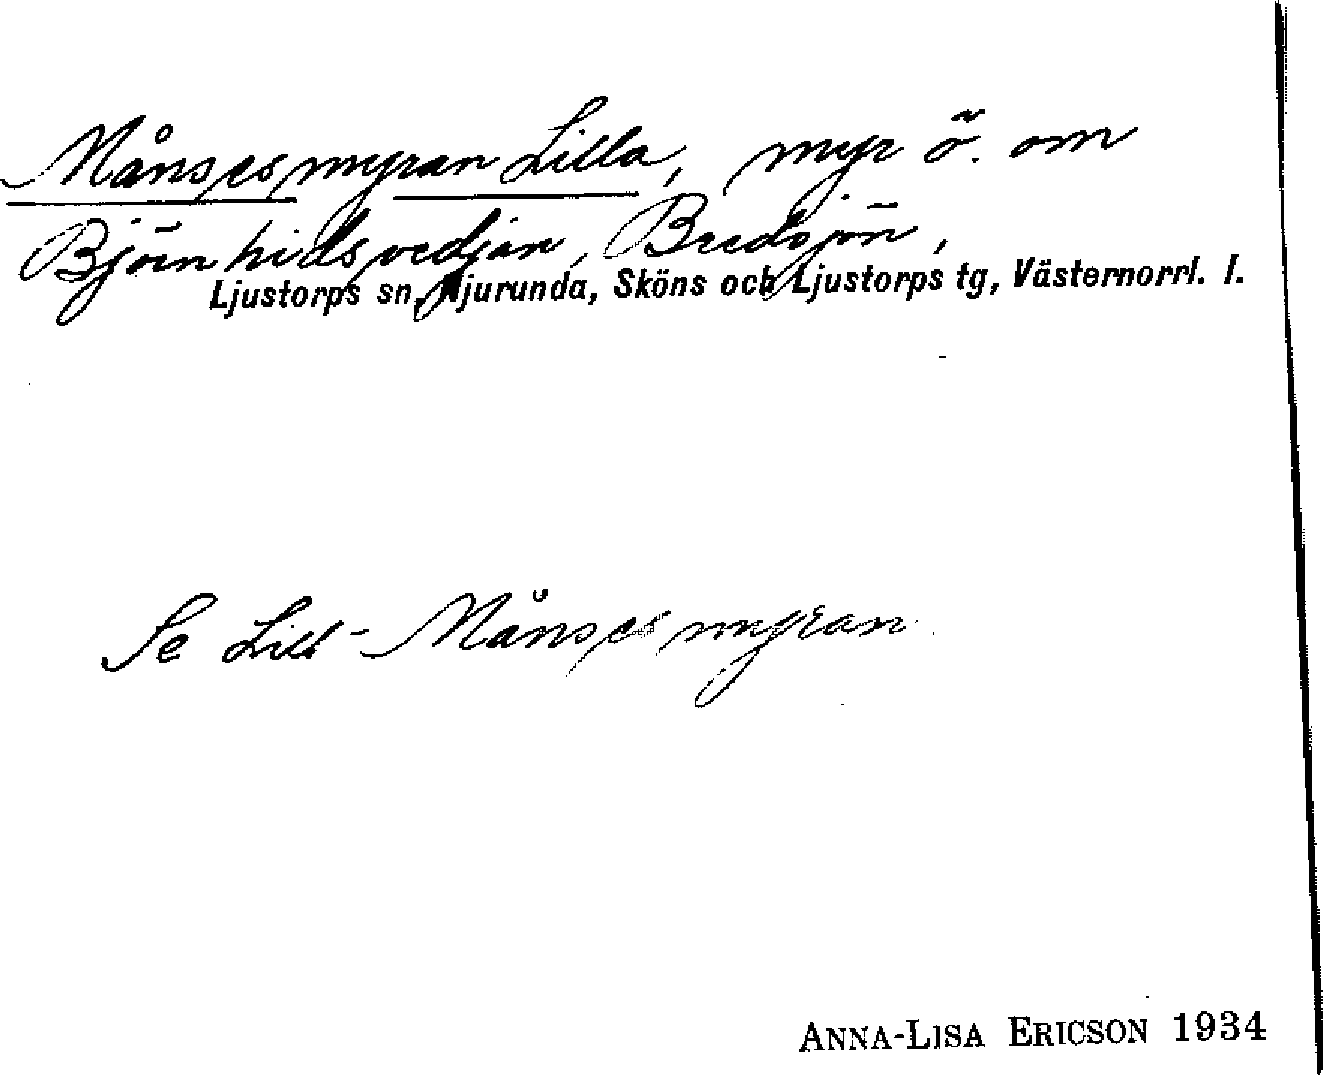 Månspesmyran Lilla, myr ö. om
Björnhidsvedjan, Bredsjön,
Ljustorps sn, Njurunda, Sköns och Ljustorps tg, Västernorrl. l.
Se Lill-Månspesmyran
ANNA-LISA ERICSON 1934